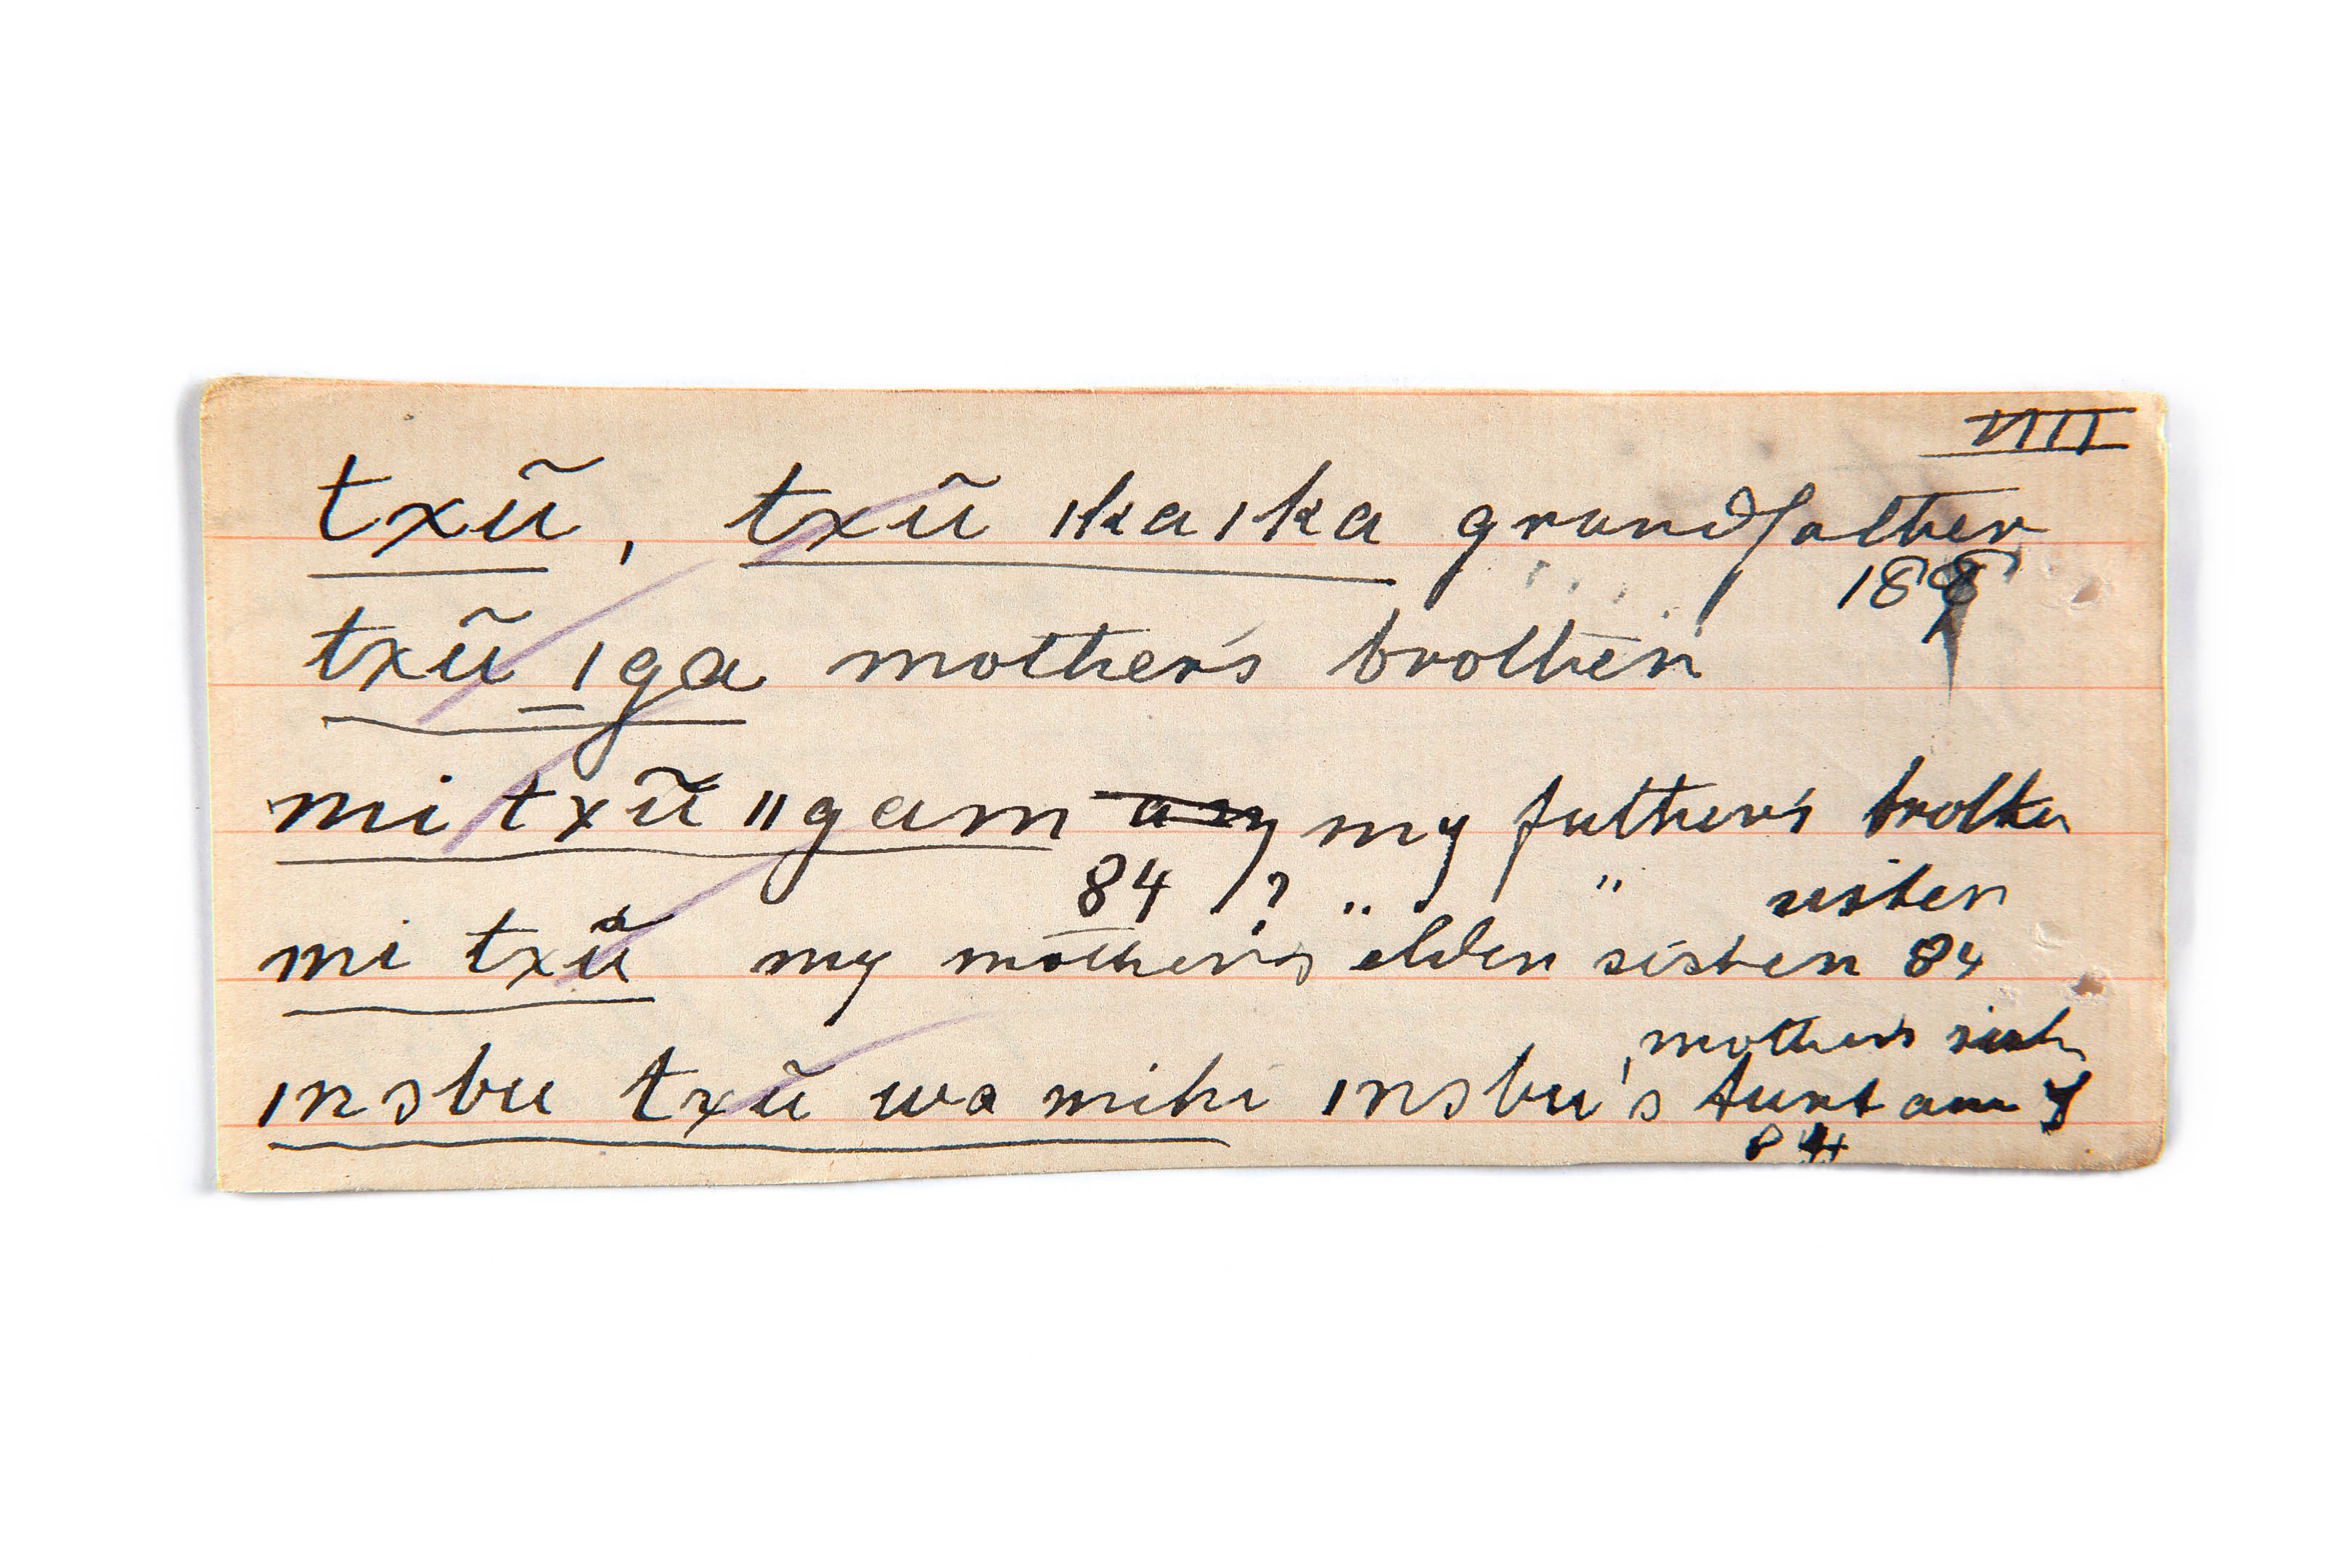 VIII
txũ, txũ ıkaıka grandfather
188
txũ ıga mother's brother
mi txũ ııgam my father's brother
84 ? " " sister
mi txũ my mother's elder sister 84
mother's sister
ınsbu txũ wa mihi ınsbu's aunt am I
84